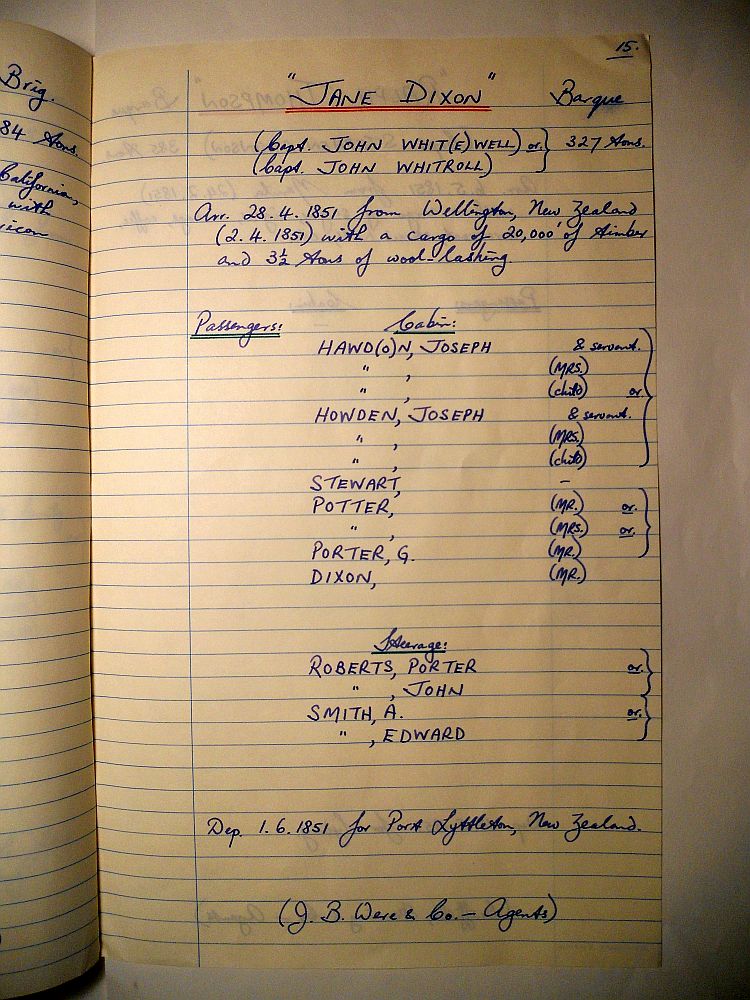 Brig.
84 tons.
California,
with
15.
"JANE DIXON" Barque
(Capt. JOHN WHIT(E)WELL) or. 327 tons.
(Capt. JOHN WHITROLL)
Arr. 28.4.1851 from Wellington, New Zealand
(2.4.1851) with a cargo of 20,000' of timber
and 3½ tons of wool-lashing
Passengers: Cabin:
HAWD(O)N, JOSEPH & servant.
" , (MRS.)
" , (child) or.
HOWDEN, JOSEPH & servant.
" , (MRS.)
" , (child)
STEWART, –
POTTER, (MR.) or.
" , (MRS.) or.
PORTER, G. (MR.)
DIXON, (MR.)
Steerage:
ROBERTS, PORTER or.
" , JOHN
SMITH, A. or.
" , EDWARD
Dep. 1.6.1851 for Port Lyttleton, New Zealand.
(J. B. Were & Co. – Agents)